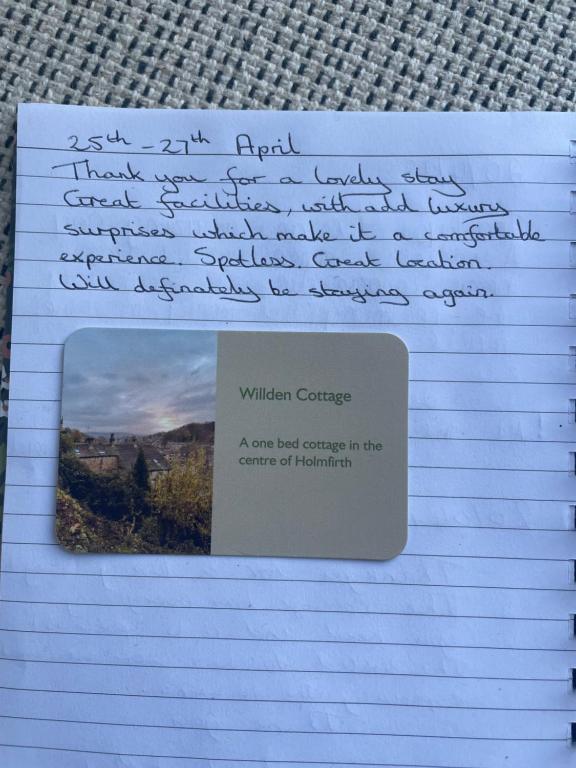 25th - 27th April
Thank you for a lovely stay
Great facilities, with add luxury
surprises which make it a comfortable
experience. Spotless. Great location.
Will definately be staying again.
Willden Cottage
A one bed cottage in the
centre of Holmfirth